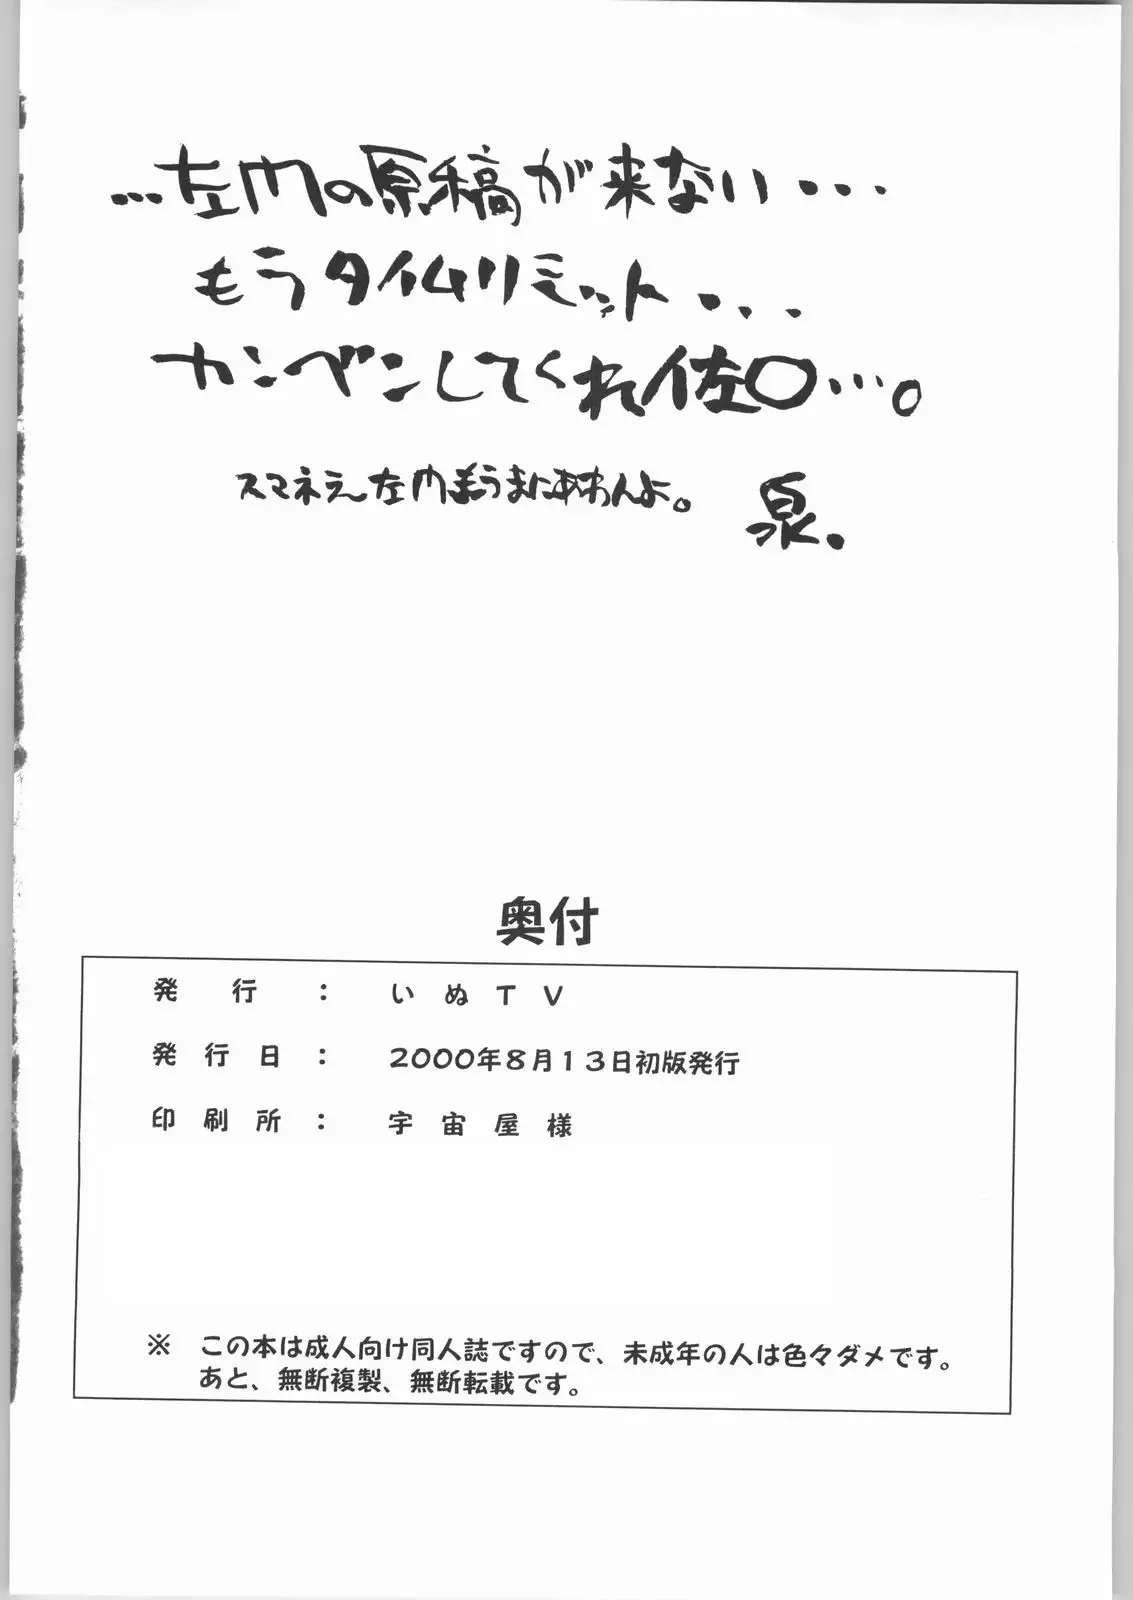 …左内の原稿が来ない・・・
もうタイムリミット・・・
カンベンしてくれ佐〇…。
スマネェ左内もうまにあわんよ。
泉.
奥付
発行：いぬTV
発行日：2000年8月13日初版発行
印刷所：宇宙屋様
※ この本は成人向け同人誌ですので、未成年の人は色々ダメです。
あと、無断複製、無断転載です。